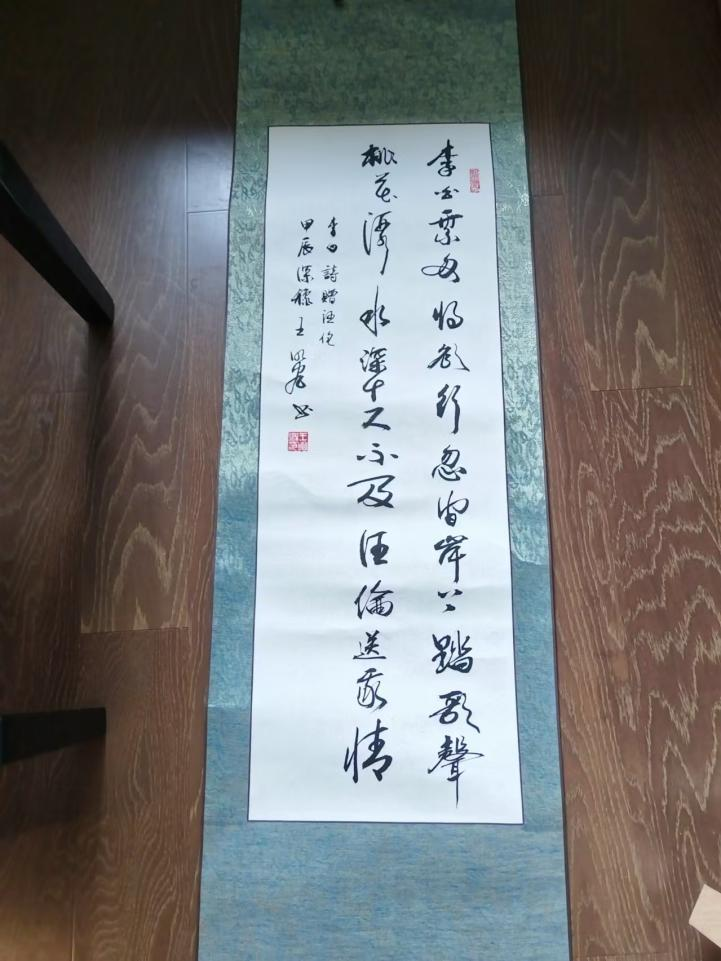 李白乘舟将欲行忽闻岸上踏歌聲
桃花潭水深千尺不及汪倫送我情
李白詩贈汪伦
甲辰深秋王书